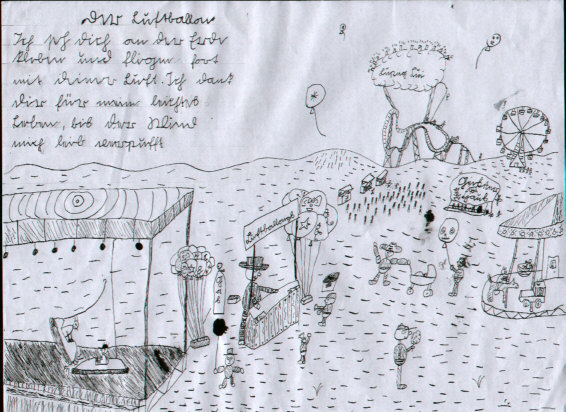 Der Luftballon
Ich seh dich an der Erde
kleben und fliegen fort
mit deiner Luft. Ich dank
dir für mein leichtes
Leben, bis der Wind
mich verpufft
Luftballons